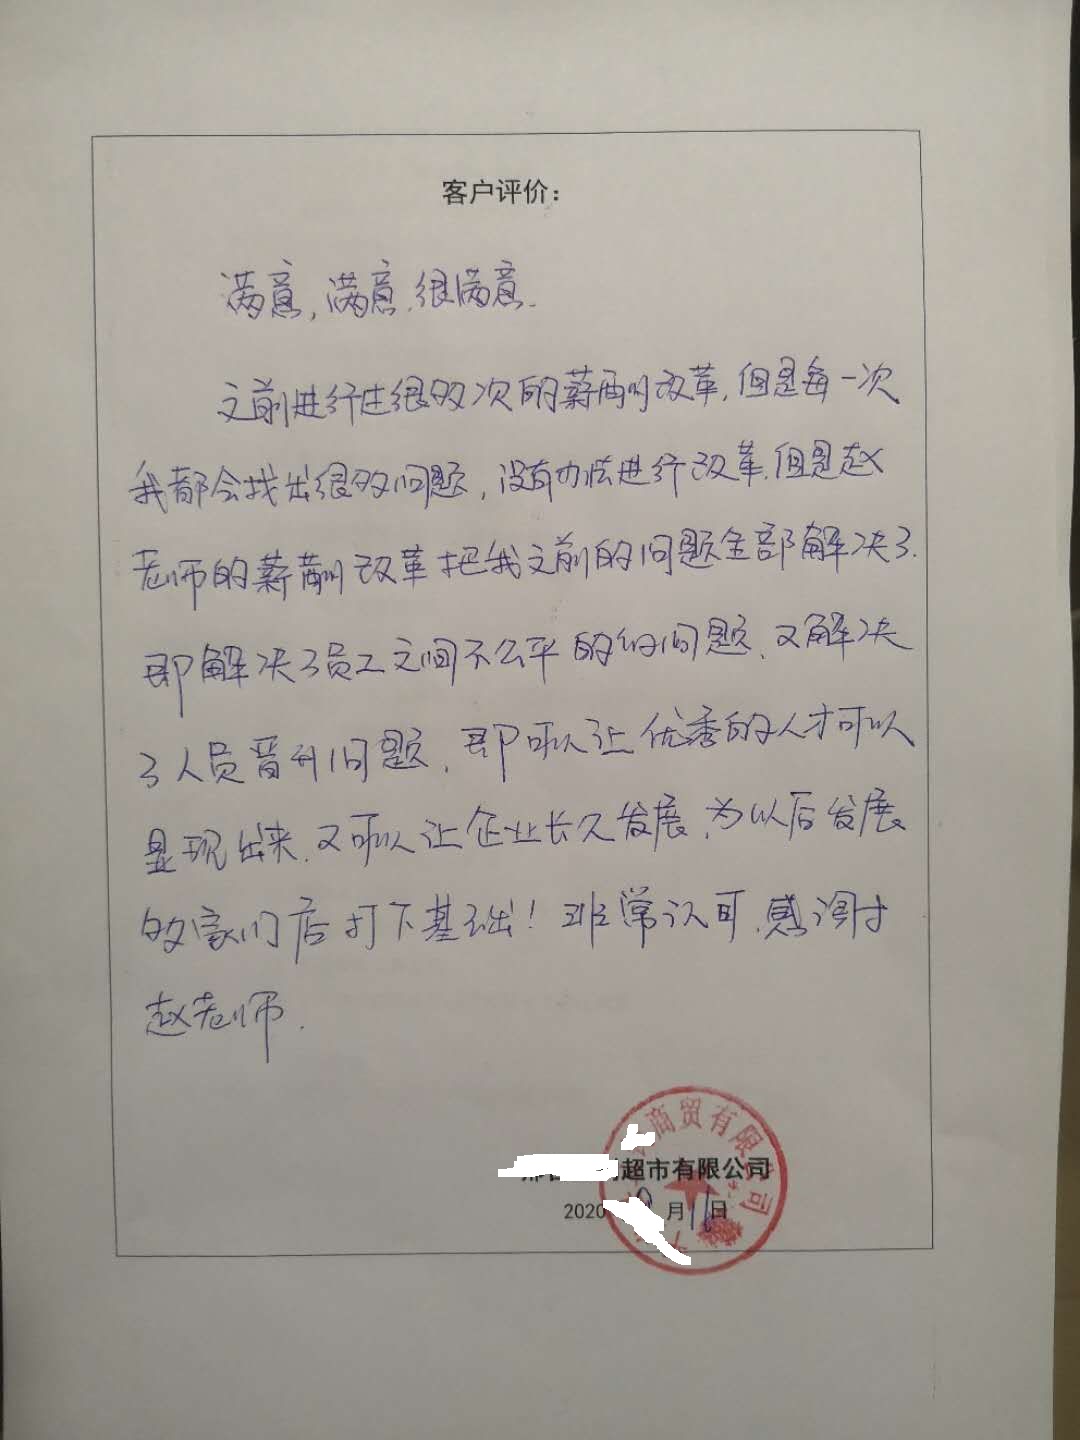 客户评价：
满意，满意，很满意。
之前进行过很多次的薪酬改革，但是每一次
我都会找出很多问题，没有办法进行改革，但是赵
老师的薪酬改革把我之前的问题全部解决了。
即解决了员工之间不公平的问题，又解决
了人员晋升问题，即可以让优秀的人才可以
显现出来，又可以让企业长久发展，为以后发展
多家门店打下基础！非常认可，感谢
赵老师。
商贸有限公司
超市有限公司
2020 9月11日